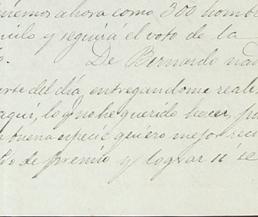 nemos ahora como 300 hombr
uilo y seguirá el voto de la
De Bernardo nad
rte del día, entregandome reale
aquí, lo q. no he querido hacer, po
buena especie quiero mejor
de premio y lograr